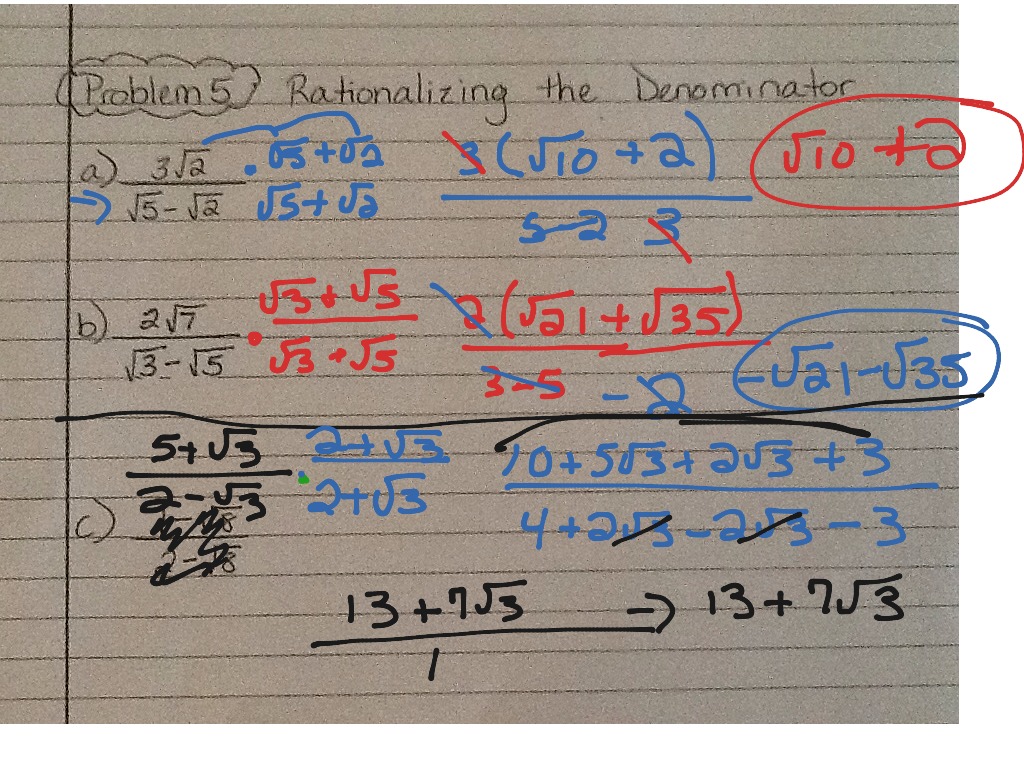 Problem 5 Rationalizing the Denominator
a) 3√2 / √5 - √2 · √5 + √2 / √5 + √2 3(√10 + 2) / 5 - 2 3 √10 + 2
b) 2√7 / √3 - √5 · √3 + √5 / √3 + √5 2(√21 + √35) / 3 - 5 - 2 -√21 - √35
c) 5 + √3 / 2 - √3 · 2 + √3 / 2 + √3 10 + 5√3 + 2√3 + 3 / 4 + 2√3 - 2√3 - 3
13 + 7√3 / 1 → 13 + 7√3